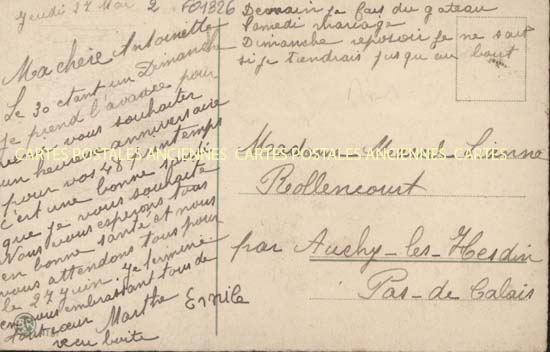 Jeudi 24 Mai 2 FO1826
Ma chère Antoinette
Le 30 étant un Dimanche
je prend l'avance pour
vous souhaiter
un heureux anniversaire
pour vos 48 printemps
C'est une bonne santé
que je vous souhaite
Nous vous espérons tous
en bonne santé et nous
vous attendons tous pour
le 27 juin. Je termine
en vous embrassant tous de
tout cœur Marthe Ernile
vue boite
Demain je fais du gateau
Samedi mariage
Dimanche reposoir je ne sait
si je tiendrais jusqu au bout
CARTES POSTALES ANCIENNES CARTES POSTALES ANCIENNES CARTES POSTALES ANCIENNES
Madame
Rollencourt
par Auchy-les-Hesdin
Pas-de Calais